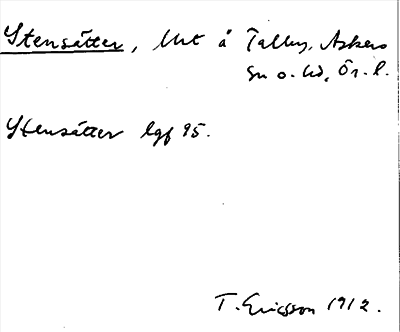 Stensätter, Urt å Talby, Askers
sn o. hd, Ör. l.
Stensätter lgf 95.
T. Ericsson 1912.